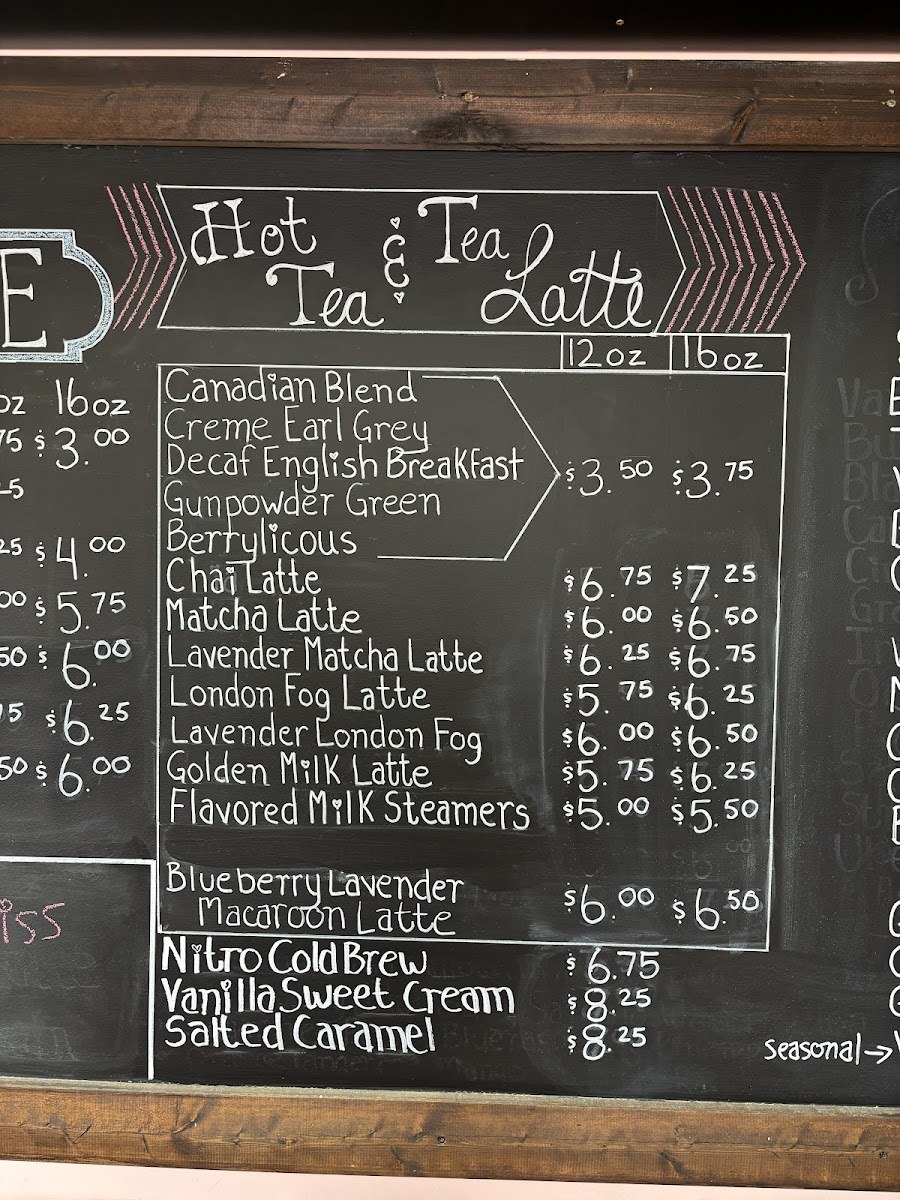 Hot Tea & Tea Latte
12oz 16oz
Canadian Blend
Creme Earl Grey
Decaf English Breakfast
$3.50 $3.75
Gunpowder Green
Berrylicous
Chai Latte $6.75 $7.25
Matcha Latte $6.00 $6.50
Lavender Matcha Latte $6.25 $6.75
London Fog Latte $5.75 $6.25
Lavender London Fog $6.00 $6.50
Golden Milk Latte $5.75 $6.25
Flavored Milk Steamers $5.00 $5.50
Blueberry Lavender
Macaroon Latte $6.00 $6.50
Nitro Cold Brew $6.75
Vanilla Sweet Cream $8.25
Salted Caramel $8.25
E
oz 16oz
75 $3.00
25 $4.00
00 $5.75
50 $6.00
75 $6.25
50 $6.00
iss
seasonal →